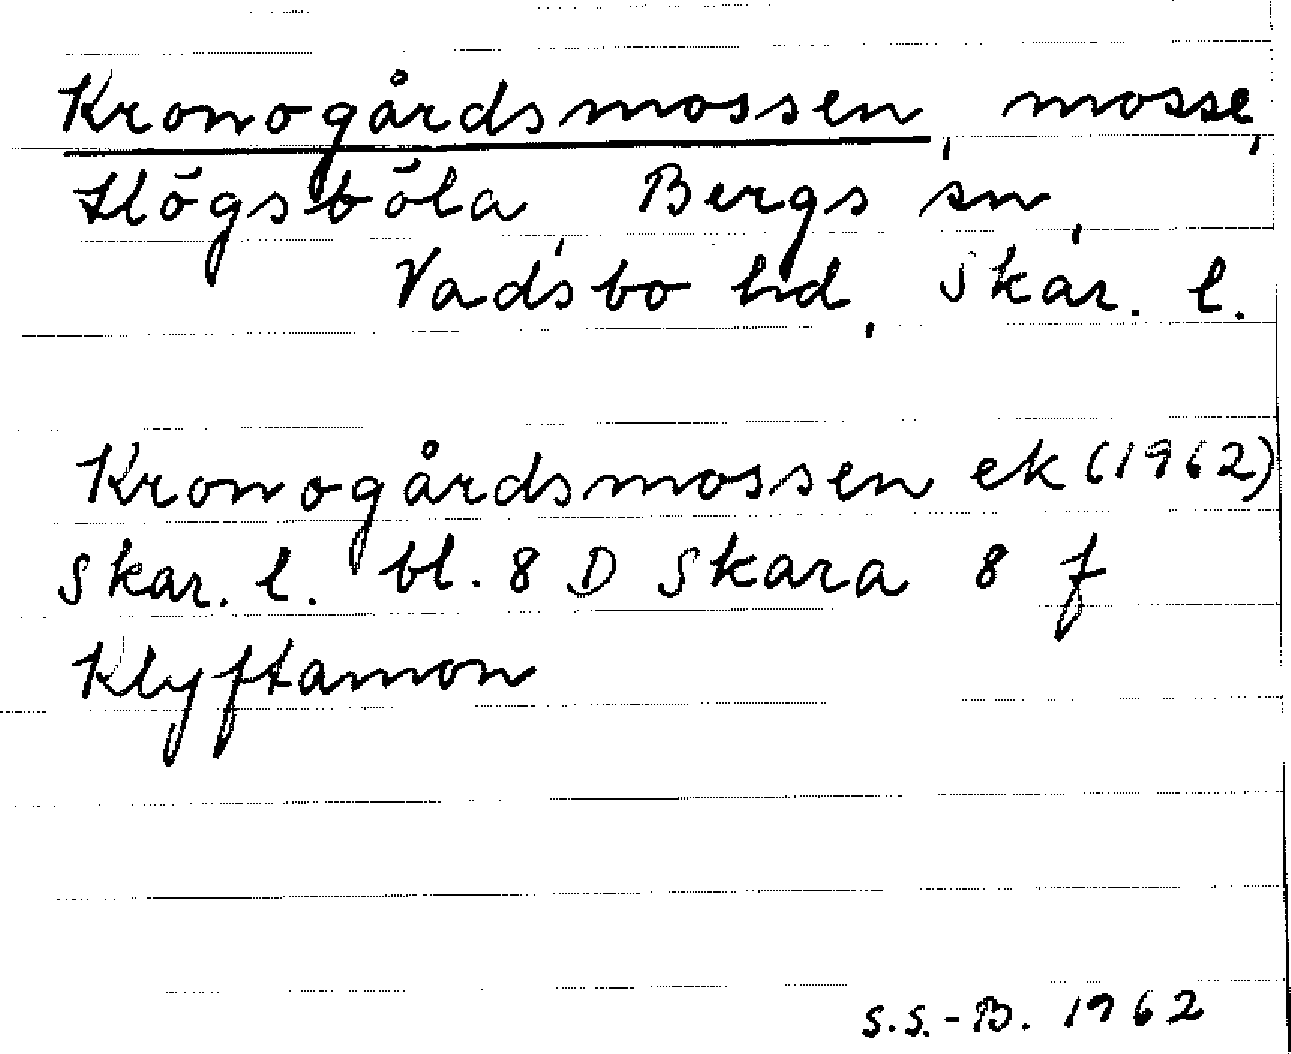 Kronogårdsmossen, mosse,
Högsböla, Bergs sn,
Vadsbo hd, Skar. l.
Kronogårdsmossen ek (1962)
Skar. l. bl. 8 D Skara 8 f
Klyftamon
S.S.-B. 1962